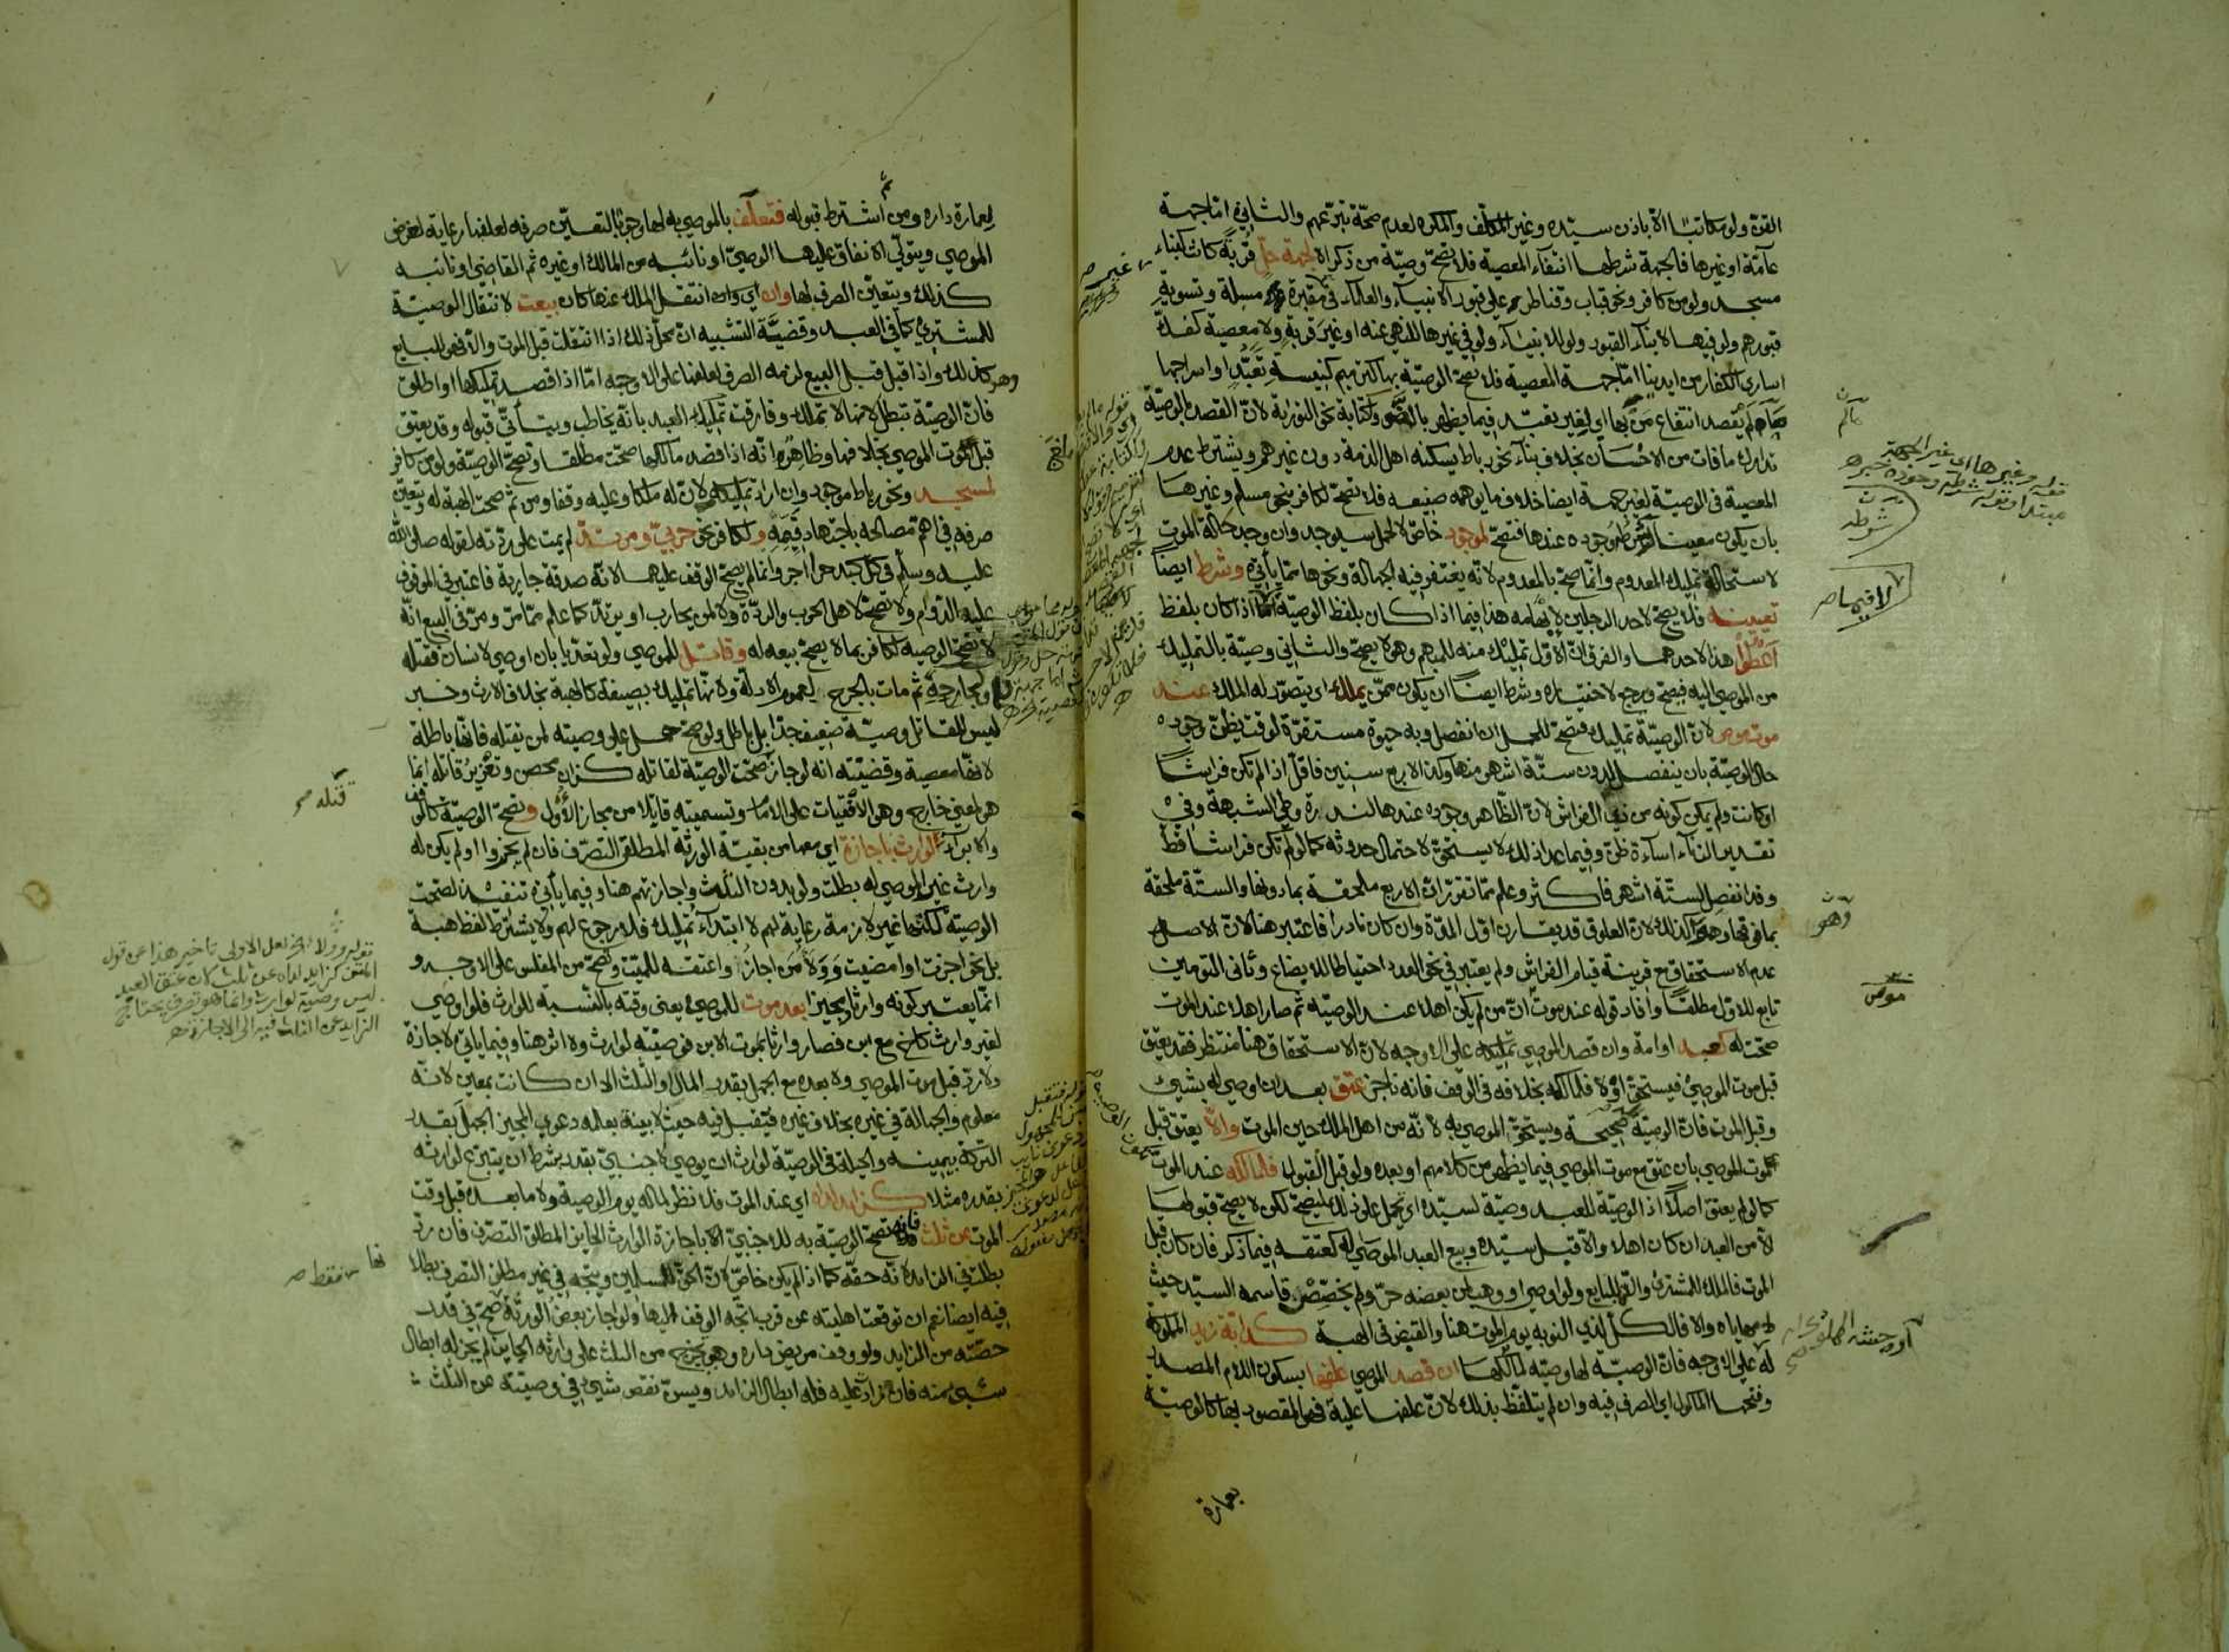 القن ولو مكاتبا الا باذن سيده وغير المكلف والمكره لعدم صحة تبرعهم والثاني اما جهة
عامة او غيرها فالجهة شرطها انتفاء المعصية فلا تصح وصية من ذكر الا لجهة حل قربة كانت كبناء
مسجد ولو من كافر ونحو قباب وقناطر على قبور الانبياء والعلماء في مقبرة مسبلة وتسوية
قبورهم ولو فيها لا بناء القبور ولو للانبياء ولو في غيرها للنهي عنه او غير قربة ولا معصية كفك
اسارى الكفار من ايدينا اما جهة المعصية فلا تصح الوصية بها كترميم كنيسة تعبد او اسراجها
لم يقصد انتفاع من بها اي لغير تعبد فيما يظهر وكتابة نحو التوراة لان القصد بالوصية
تدارك ما فات من الاحسان بخلاف بناء نحو رباط يسكنه اهل الذمة دون غيرهم ويشترط عدم
المعصية في الوصية لغير جهة ايضا خلاف ما يوهمه صنيعه فلا تصح لكافر بنحو مسلم وغيرها
بان يكون معينا وجوده عندها فتصح لموجود خاص لا لحمل سيوجد وان وجد حالة الموت
لاستحالة تمليك المعدوم وانما صح بالمعدوم لانه يغتفر فيه الجهالة ونحوها مما يأتي وشرط ايضا
تعيينه فلا يصح لاحد الرجلين لابهامه هذا فيما اذا كان بلفظ الوصية اما اذا كان بلفظ
اعطوا هذا لاحدهما والفرق ان الاول تمليك منه للمبهم وهو لا يصح والثاني وصية بالتمليك
من الموصى اليه فيصح ويرجع لاختياره وشرط ايضا ان يكون ممن يملك اي يتصور له الملك عند
موت موص لان الوصية تمليك فتصح للحمل ان انفصل وبه حيوة مستقرة لوقت يظن وجوده
حال الوصية بان ينفصل لدون ستة اشهر منها وكذا لاربع سنين فاقل اذا لم تكن فراشا
او كانت ولم يمكن كونه من ذي الفراش لان الظاهر وجوده عندها لندرة وطئ الشبهة وفي
تقدير الزناء اساءة ظن وفيما عدا ذلك لا يستحق لاحتمال حدوثه كما لو لم تكن فراشا قط
وقد انفصل لستة اشهر فاكثر وعلم مما تقرر ان الاربع ملحقة بما دونها والستة ملحقة
بما فوقها وهو كذلك لان العلوق قد يقارن اول المدة وان كان نادرا فاعتبر هنا لان الاصل
عدم الاستحقاق مع قرينة قيام الفراش ولم يعتبر في نحو العدد احتياطا للابضاع وثاني التومين
تابع للاول مطلقا وافاد قوله عند موت ان من لم يكن اهلا عند الوصية ثم صار اهلا عند الموت
صحت له كعبد او امة وان قصد الموصي تمليكه على الاوجه لان الاستحقاق هنا منتظر فقد يعتق
قبل موت الموصي فيستحق او لا فلمالكه بخلافه في الوقف فانه ناجز عتق بعد ان اوصي له بشيئ
وقبل الموت فان الوصية صحيحة ويستحق الموصى به لانه من اهل الملك حين الموت والا يعتق قبل
موت الموصي بان عتق مع موت الموصي فيما يظهر من كلامهم او بعده ولو قبل القبول فلمالكه عند الموت
كما لو لم يعتق اصلا اذ الوصية للعبد وصية لسيده اي تحمل على ذلك لتصح لكن لا يصح قبولها
الا من العبد ان كان اهلا والا قبل سيده وبيع العبد الموصى له كعتقه فيما ذكر فان كان قبل
الموت فالملك للمشتري والا فللبايع ولو اوصى او وهب لمن بعضه حر ولم يخصص قاسمه السيد حيث
لا مهاياة والا فالكل لذي النوبة يوم الموت هنا والقبض في الهبة كدابة زيد المملوكة
له على الاوجه فان الوصية لها وصية لمالكها ان قصد الموصي علفها بسكون اللام المصدر
وفتحها الماكول اي الصرف فيه وان لم يتلفظ بذلك لان علفها عليه فهو المقصود بها كالوصية
بعمارة
غير صح
شرطه
وهو
موص
لعمارة داره ومن ثم اشترط قبوله فتعلف بالموصى به لها وجوبا لتعين صرفه لعلفها رعاية لغرض
الموصي ويتولى الانفاق عليها الوصي او نائبه من المالك او غيره ثم القاضي او نائبه
كذلك ويتعين الصرف لها وان اي وان انتقل الملك عنها كان بيعت لانتقال الوصية
للمشتري كما في العبد وقضية التشبيه ان محل ذلك اذا انتقلت قبل الموت والا فهو للبايع
وهو كذلك واذا قبل قبل البيع لزمه الصرف لعلفها على الاوجه اما اذا قصد تمليكها او اطلق
فان الوصية تبطل لانها لا تملك وفارقت تمليك العبد بانه يخاطب ويتأتى قبوله وقد يعتق
قبل موت الموصي بخلافها وظاهر انه اذا قصد مالكها صحت مطلقا وتصح الوصية ولو من كافر
لمسجد ونحو رباط موجود وان اراد تمليكه لان له ملكا وعليه وقفا ومن ثم صحت الهبة له ويتعين
صرفه في اهم مصالحه باجتهاد قيمه ولكافر نحو حربي ومرتد لم يمت على ردته لقوله صلى الله
عليه وسلم في كل كبد حرا اجر وانما لم يصح الوقف عليهما لانه صدقة جارية فاعتبر في الموقوف
عليه الدوام ولا تصح لاهل الحرب والردة ولا لمن يحارب او يرتد كما علم مما مر ومر في البيع انه
لا تصح الوصية لكافر بما لا يصح بيعه له وقاتل للموصي ولو تعديا بان اوصى لانسان فقتله
او لجارحه ثم مات بالجرح لعموم الادلة ولانها تمليك بصيغة كالهبة بخلاف الارث وخبر
ليس للقاتل وصية ضعيف جدا بل باطل ولو صح حمل على وصيته لمن يقتله فانها باطلة
لانها معصية وقضيته انه لو جاز صحت الوصية لقاتله كزان محصن وتعزير قاتله انما
هو لمعنى خارج وهو الافتيات على الامام وتسميته قاتلا من مجاز الاول وتصح الوصية كالوقف
والابراء لوارث باجازة اي معها من بقية الورثة المطلق التصرف فان لم يجيزوا او لم يكن له
وارث غير الموصى له بطلت ولو بدون الثلث واجازتهم هنا وفيما يأتي تنفيذ لصحت
الوصية لكنها غير لازمة رعاية لهم لا ابتداء تمليك فلا رجوع لهم ولا يشترط لفظ هبة
بل نحو اجزت او امضيت وولاء من اجاز واعتقه للميت وتصح من المفلس على الاوجه و
انما يعتبر كونه وارثا ومجيزا بعد موت للموصي يعني وقته بالنسبة للوارث فلو اوصى
لغير وارث كاخ مع ابن فصار وارثا بموت الابن فوصيته لوارث ولا اثر هنا وفيما يأتي لاجازة
ولا رد قبل موت الموصي ولا بعده مع الجهل بقدر المال او الثلث الا ان كانت بمعين لانه
معلوم والجهالة في غيره بخلاف غيره فيقبل فيه حيث لا بينة بعلمه دعوى المجيز الجهل بقدر
التركة بيمينه والحيلة في الوصية لوارث ان يوصي لاجنبي بقدر بشرط ان يتبرع لوارثه
بقدره مثلا كزايد اي عند الموت فلا نظر لماله يوم الوصية ولا ما بعده قبل وقت
الموت عن ثلث فانه تصح الوصية به للاجنبي الا باجازة الوارث الحايز المطلق التصرف فان رد
بطلت في الزايد لانه حقه كما اذا لم يكن خاص لان الحق للمسلمين ويتجه في غير مطلق التصرف بطلا
فيه ايضا نعم ان توقعت اهليته عن قرب اتجه الوقف اليها ولو اجاز بعض الورثة صح في قدر
حصته من الزايد ولو وقف مريض داره وهو يخرج من الثلث على وارثه الحايز لم يجز له ابطال
شيئ منه فان زاد عليه فله ابطال الزايد ويسن نقص شيئ في وصيته عن الثلث
قتله صح
قوله وولاء الخ لعل الاولى تاخير هذا عن قول
المتن كزايد لماه عن ثلث لان عتق العبد
ليس وصية لوارث وانما هو تصرف يحتاج
الزايد عن الثلث فيه الى الاجازة